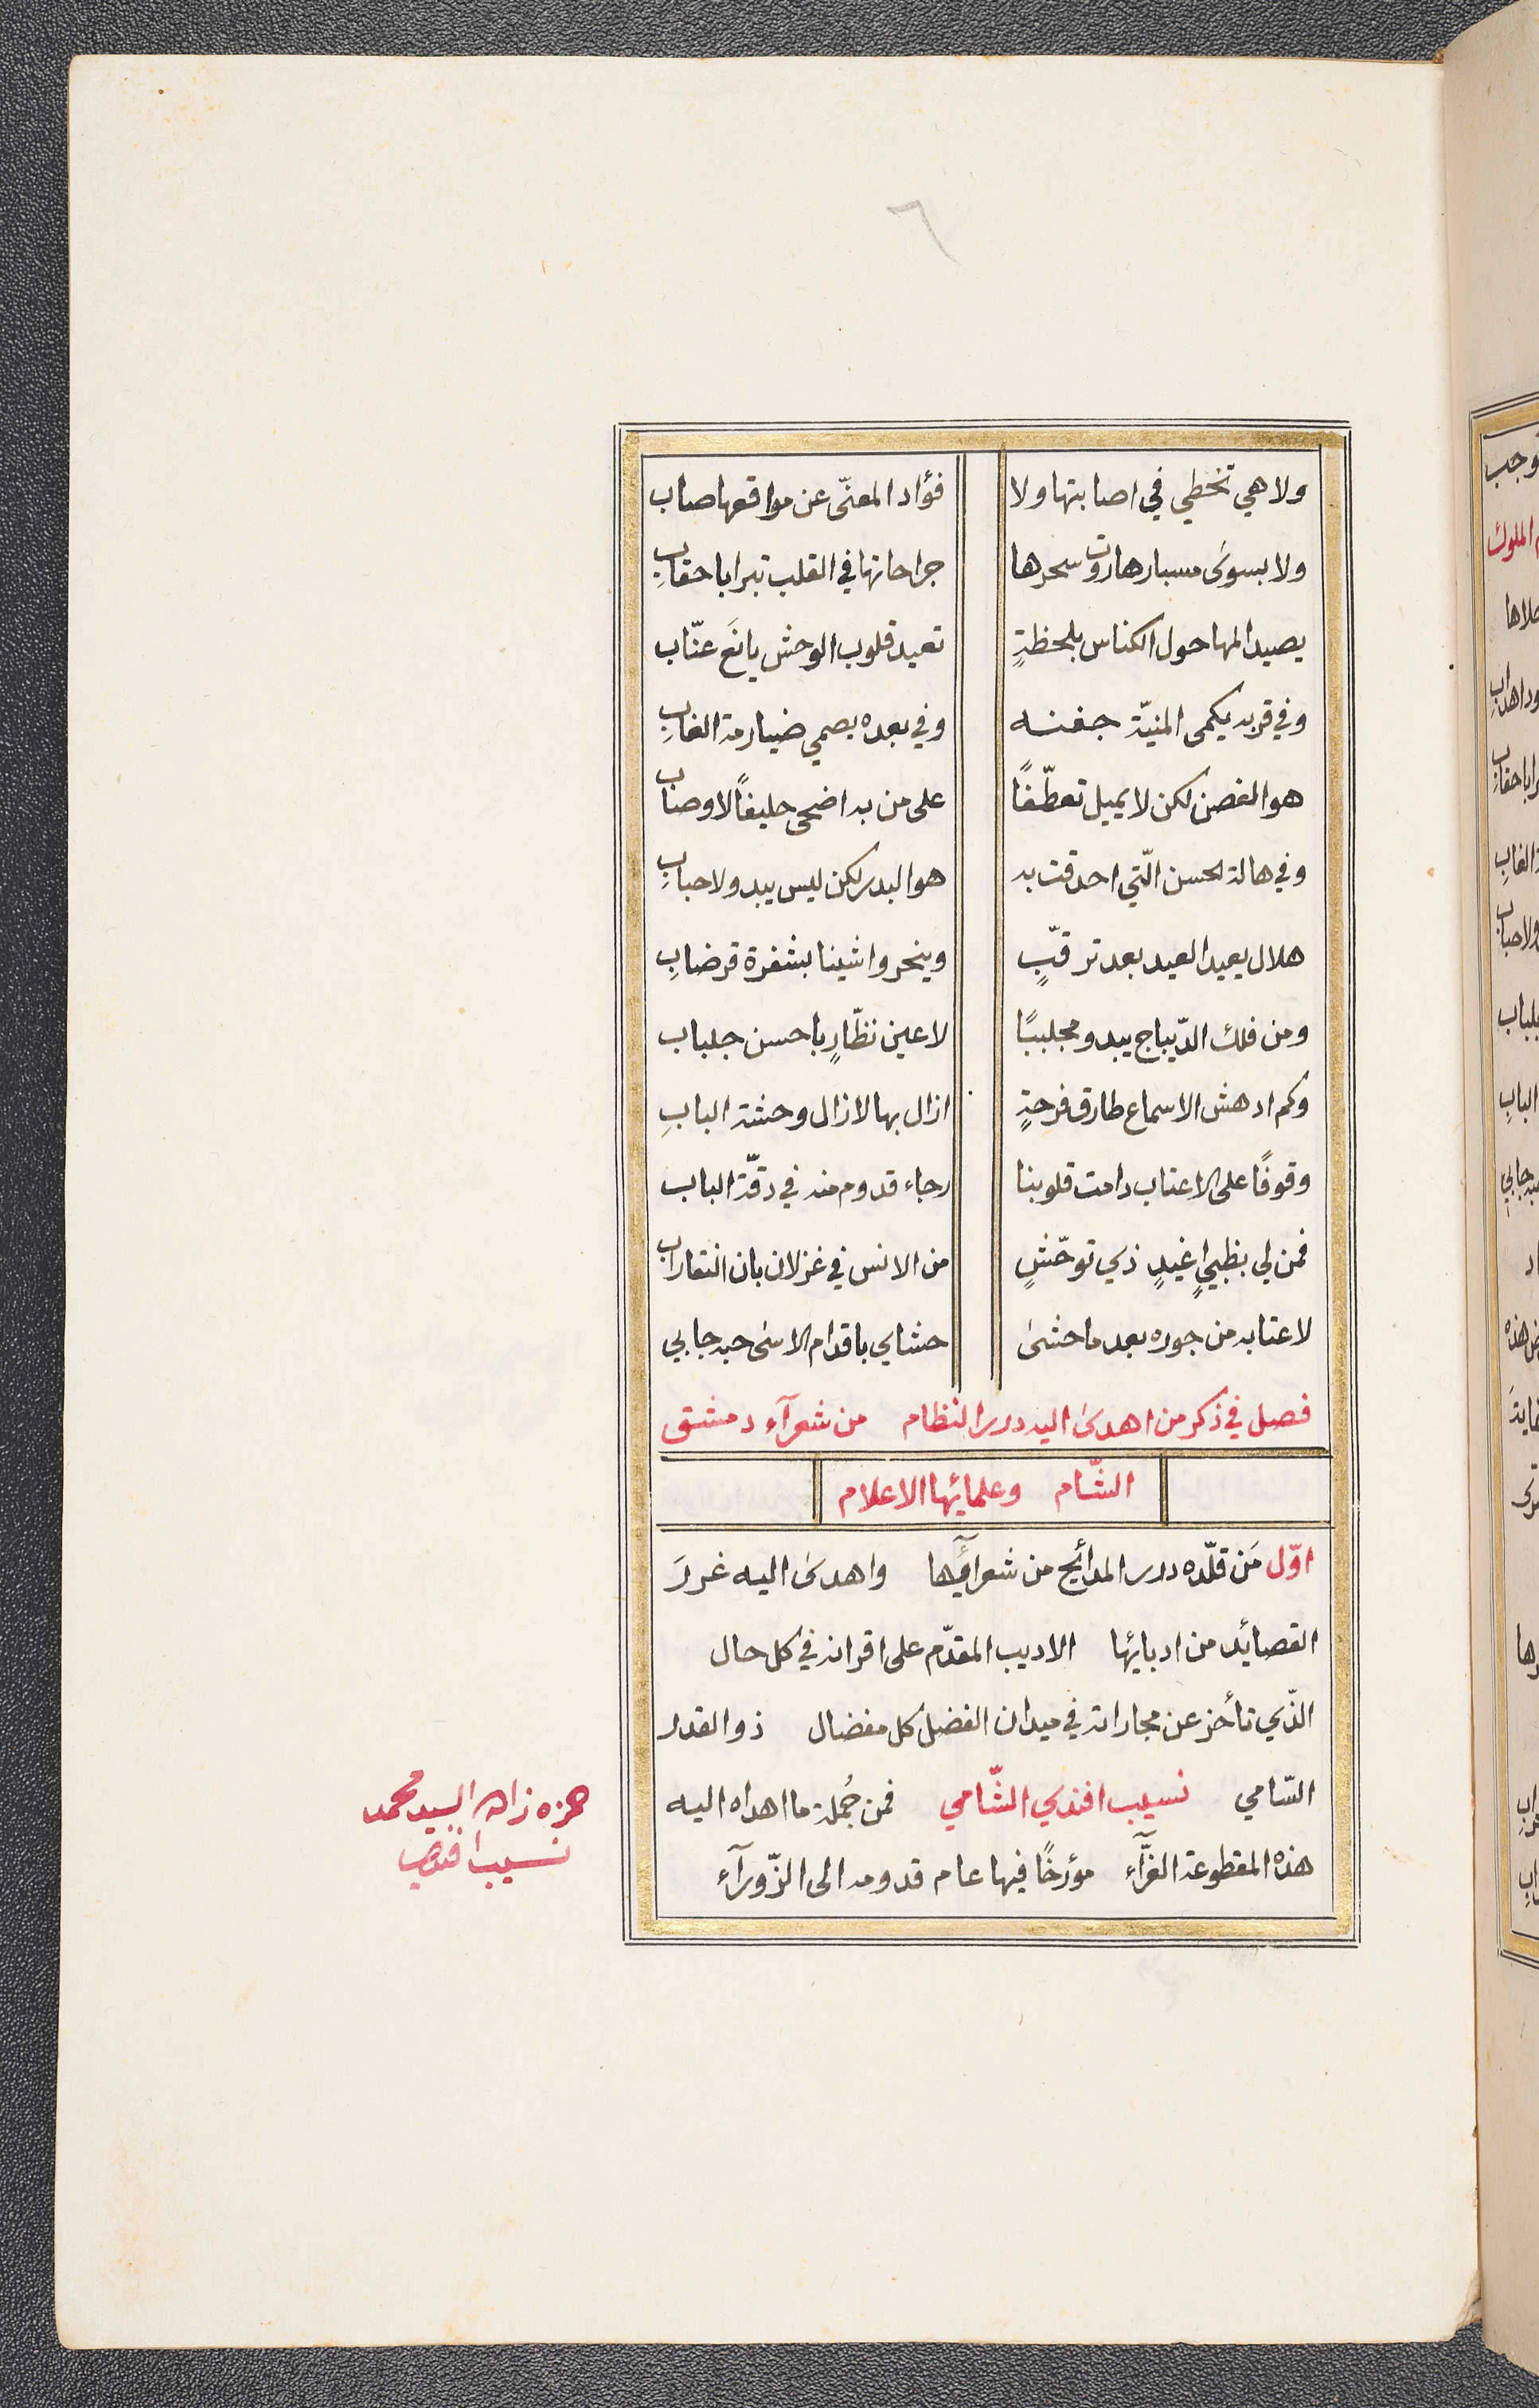 ٦
ولا هي تخطي في اصابتها ولا فؤاد المعنّى عن مواقعها صاب
ولا بسوى مسبار هاروت سحرها جراحاتها في القلب تبرا باحقابِ
يصيد المها حول الكناس بلحظةٍ تعيد قلوب الوحش يانَع عنّاب
وفي قربه يكمى المنيّة جفنه وفي بعده يصمي ضيارمة الغابِ
هو الغصن لكن لا يميل تعطّفًا على من به اضحى حليفًا لاوصاب
وفي هالة لحسن الّتي احدقت به هو البدر لكن ليس يبدو لاحبابِ
هلال يعيد العيد بعد ترقّبٍ وينحر واشينا بشفرة قرضابِ
ومن فلك الدّيباج يبدو مجلببًا لاعين نظّارٍ باحسن جلباب
وكم ادهش الاسماع طارق فرحةٍ ازال بها لازال وحشة البابِ
وقوفًا على الاعتاب دامت قلوبنا رجاء قدوم منه في دقّة الباب
فمن لي بظبيٍ اغيدٍ ذي توحّشٍ من الانس في غزلان بان النقا راب
لاعتابه من جوره بعد ما حشى حشاي باقدام الاسى حبه جابي
فصل في ذكر من اهدى اليه درر النظام من شعرآء دمشق
الشّام وعلمائها الاعلام
اوّل مَن قلّده درر المدائح من شعرآئها واهدى اليه غررَ
القصائد من ادبائها الاديب المقدّم على اقرانه في كل حال
الذّي تأخر عن مجاراته في ميدان الفضل كل مفضال ذو القدر
السّامي نسيب افندي الشّامي فمن جُملة ما اهداه اليه
هذه المقطوعة الغرّآء مؤرخًا فيها عام قدومه الى الزّورآء
حمزه زاده السيد محمد
نسيب افندی